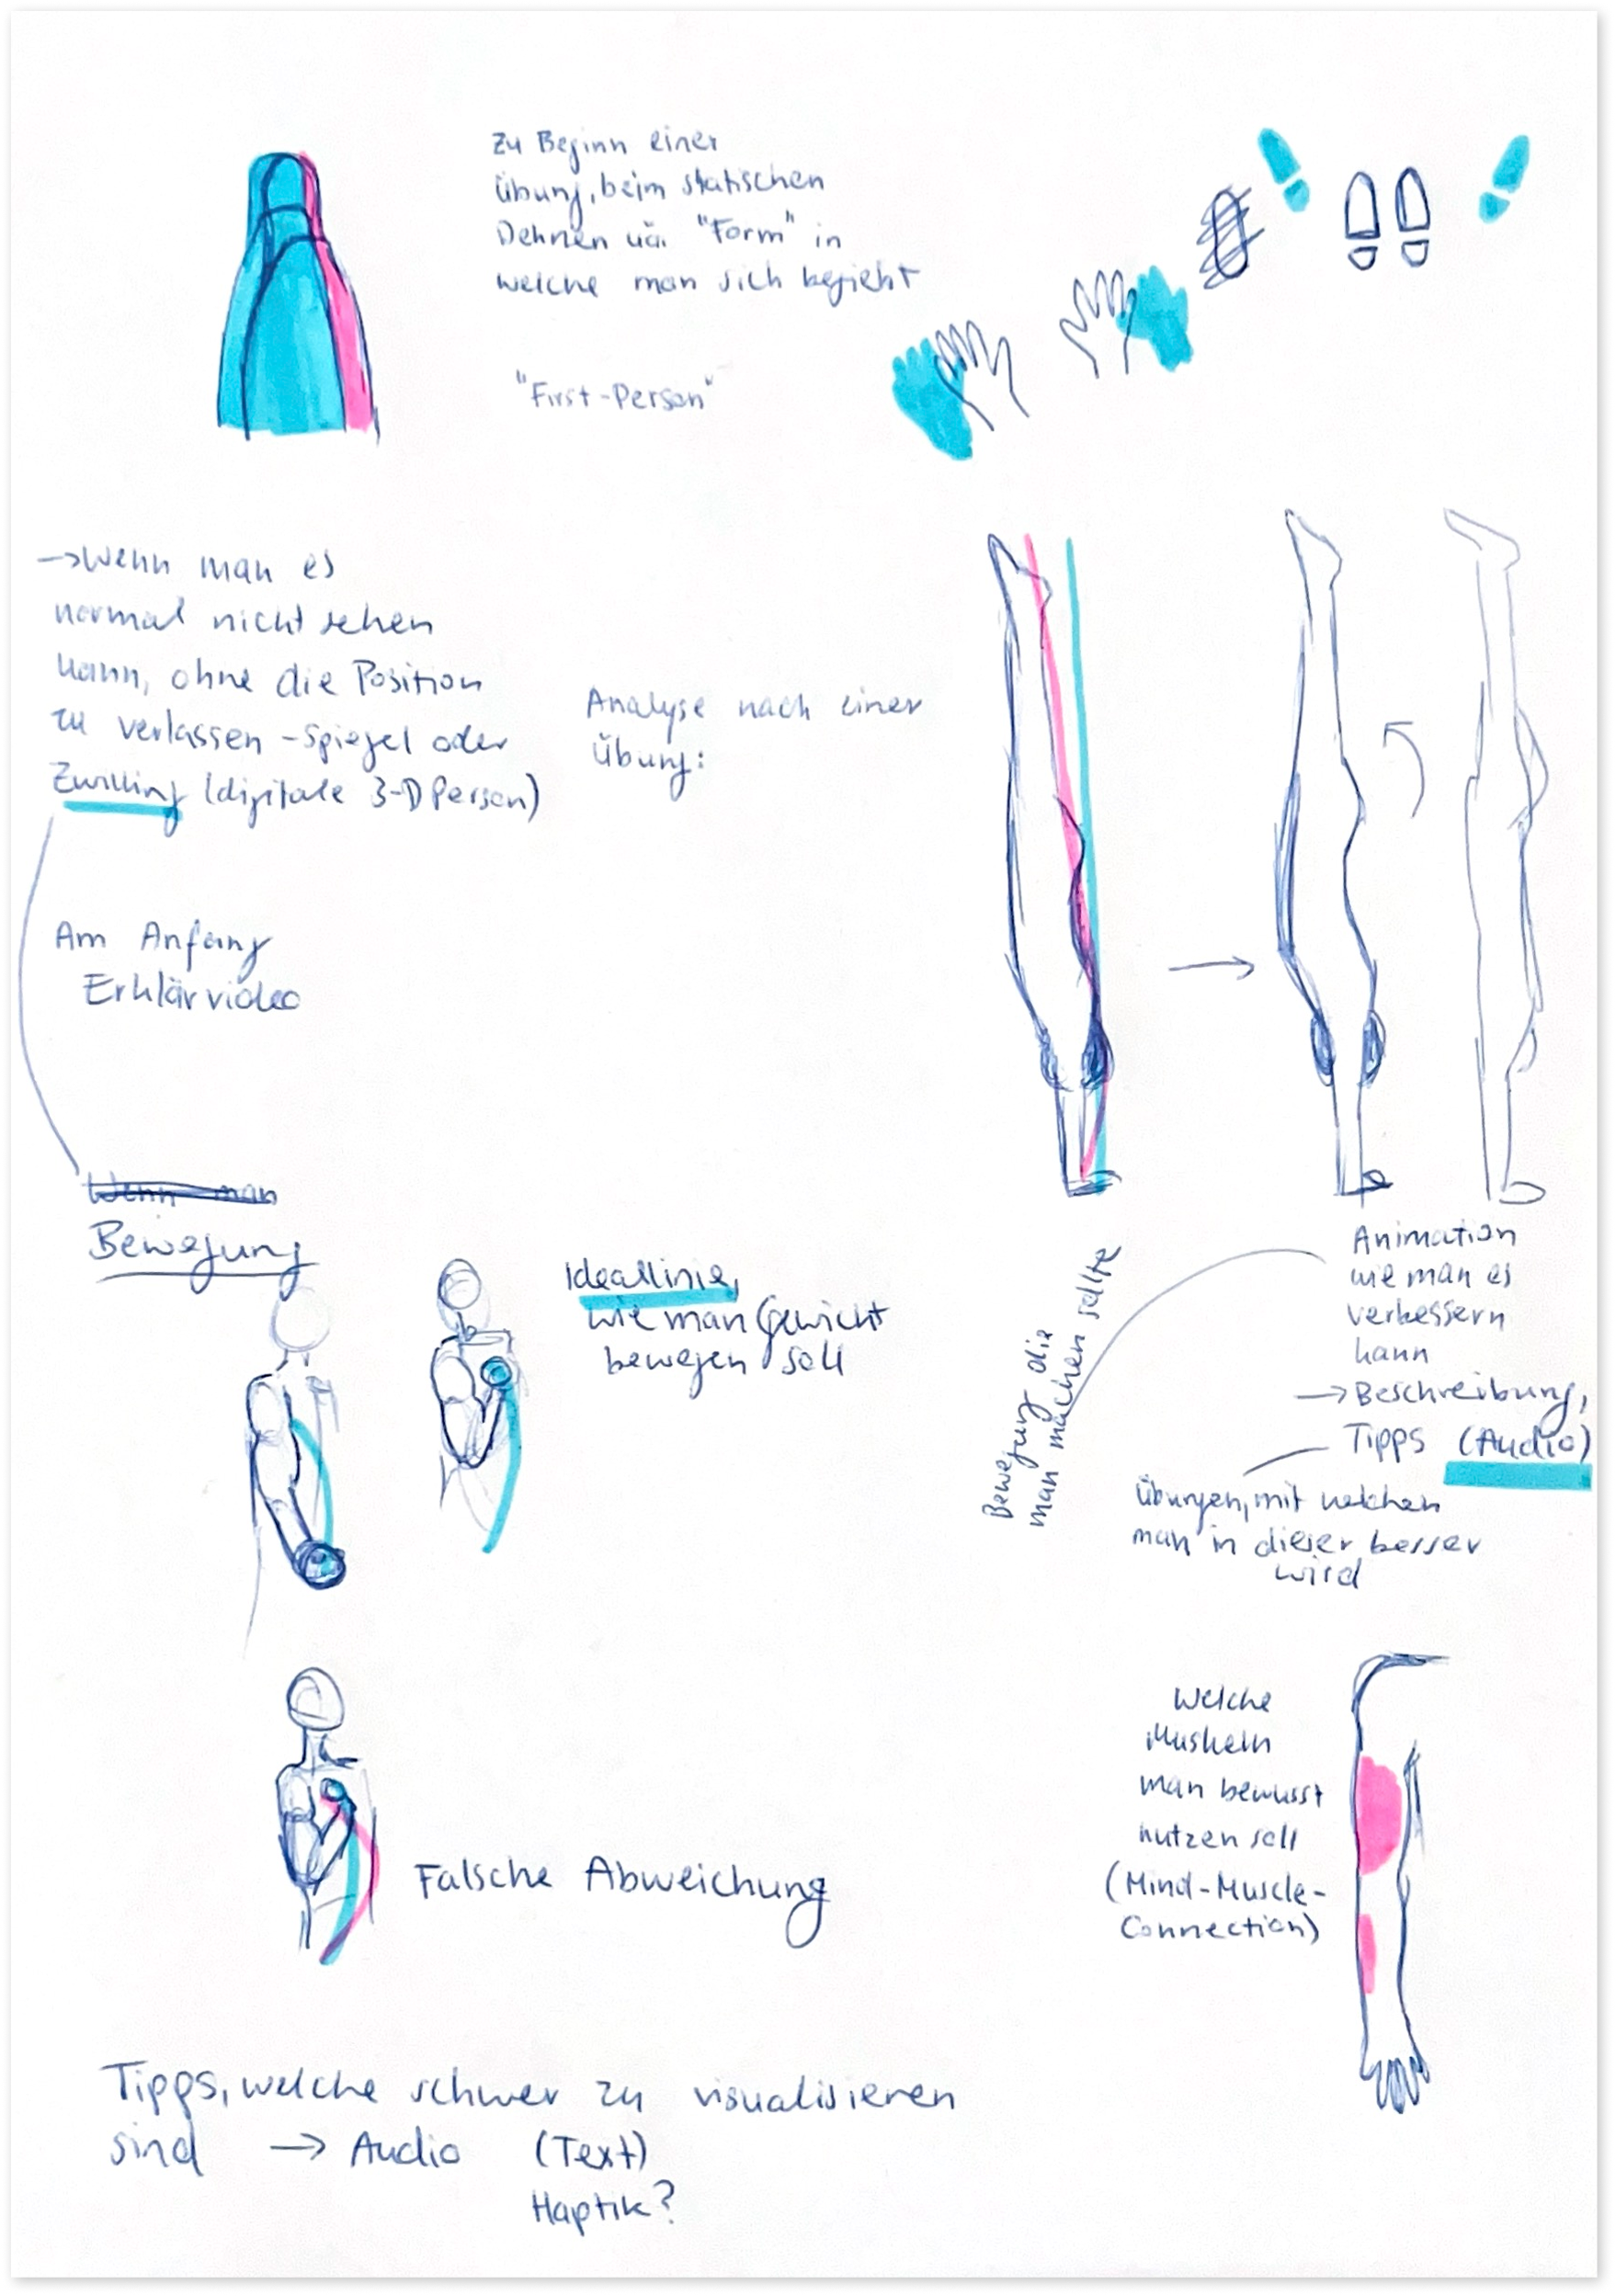 Zu Beginn einer
Übung, beim statischen
Dehnen uä. "Form" in
welche man sich begieht
"First-Person"
→ Wenn man es
normal nicht sehen
kann, ohne die Position
zu verlassen - Spiegel oder
Zwilling (digitale 3-D Person)
Analyse nach einer
Übung:
Am Anfang
Erklärvideo
Wenn man
Bewegung
Ideallinie,
wie man Gewicht
bewegen soll
Bewegung die
man machen sollte
Animation
wie man es
verbessern
kann
→ Beschreibung,
Tipps (Audio)
Übungen, mit welchen
man in dieser besser
wird
Falsche Abweichung
Welche
Muskeln
man bewusst
nutzen soll
(Mind-Muscle-
Connection)
Tipps, welche schwer zu visualisieren
sind → Audio (Text)
Haptik?